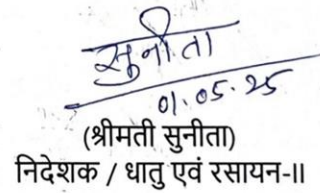 सुनीता
01.05.25
(श्रीमती सुनीता)
निदेशक / धातु एवं रसायन-II